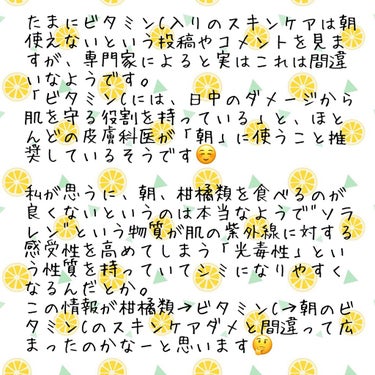 たまにビタミンC入りのスキンケアは朝
使えないという投稿やコメントを見ま
すが、専門家によると実はこれは間違
いなようです。
「ビタミンCには、日中のダメージから
肌を守る役割を持っている」と、ほと
んどの皮膚科医が「朝」に使うこと推
奨しているそうです☺️
私が思うに、朝、柑橘類を食べるのが
良くないというのは本当なようで"ソラ
レン"という物質が肌の紫外線に対する
感受性を高めてしまう「光毒性」とい
う性質を持っていてシミになりやすく
なるんだとか。
この情報が柑橘類→ビタミンC→朝のビ
タミンCのスキンケアダメと間違って広
まったのかなーと思います🤔